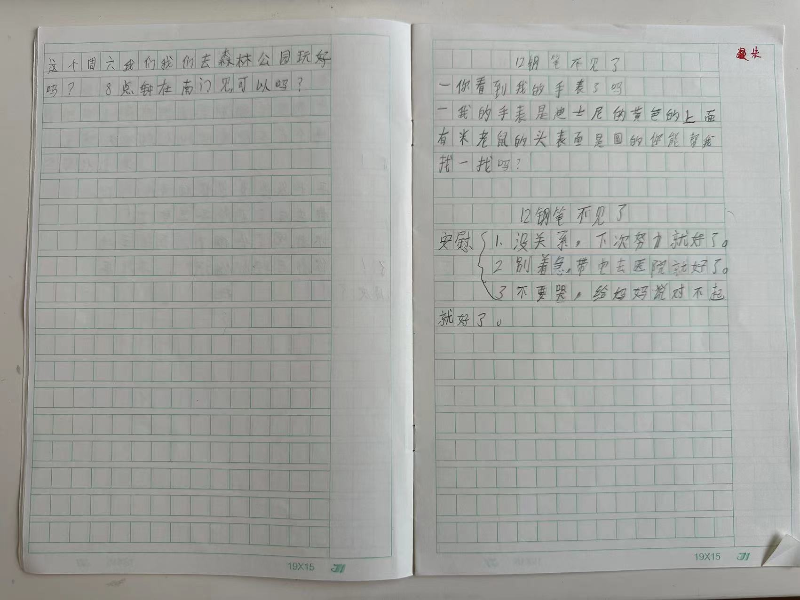 这个周六我们我们去森林公园玩好
吗？ 8点钟在南门见可以吗？
19X15
12钢笔不见了
一你看到我的手表了吗
一我的手表是迪士尼的黄色的上面
有米老鼠的头表面是圆的你能帮我
找一找吗？
12钢笔不见了
安慰 1. 没关系，下次努力就好了。
2 别着急，带它去医院就好了。
3 不要哭，给妈妈说对不起
就好了。
19X15